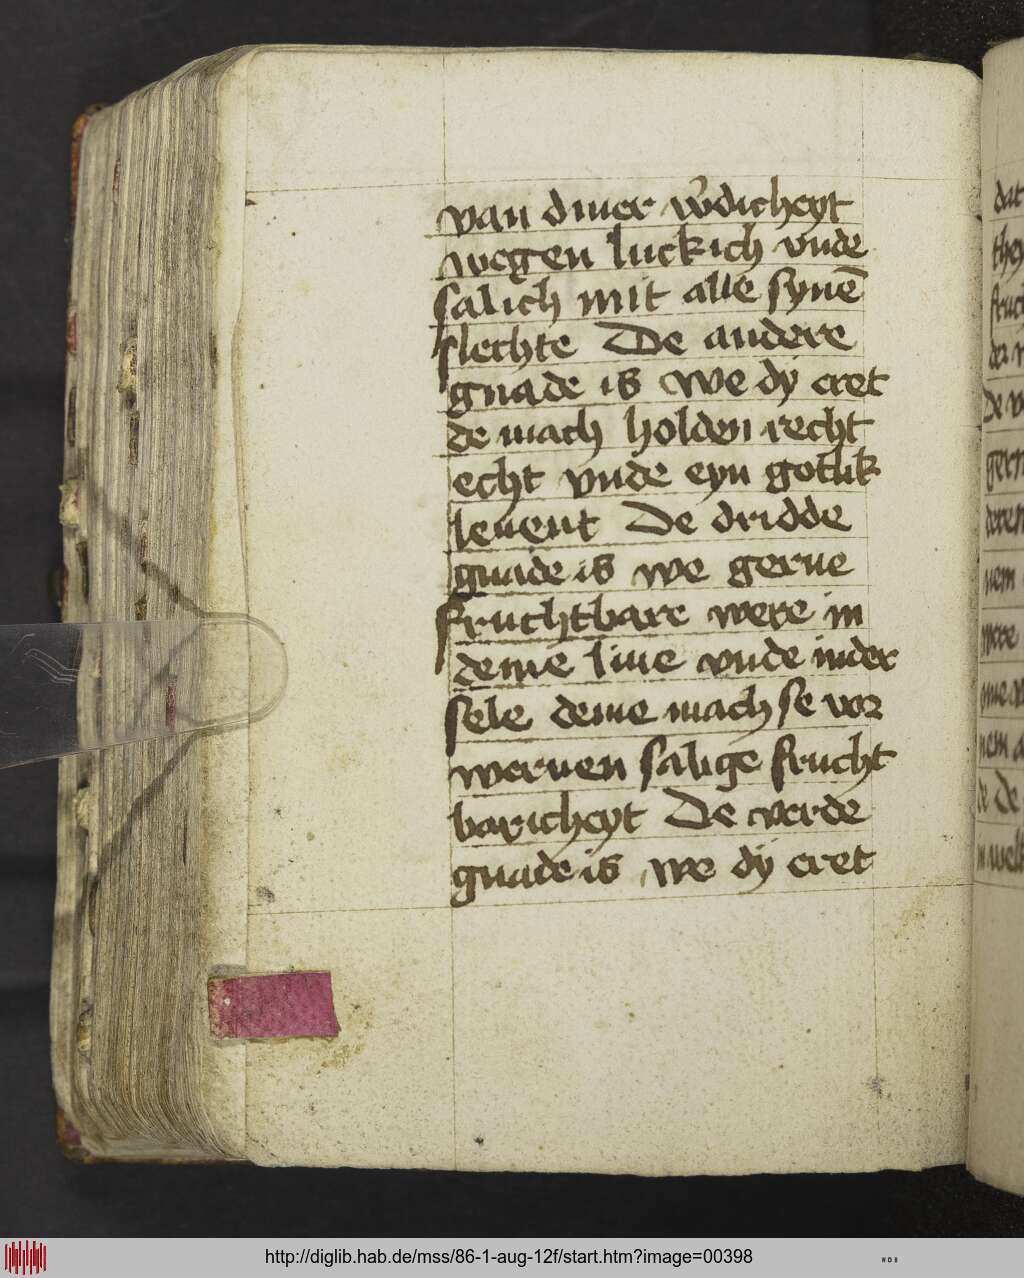 van diner w̉dicheyt
wegen luckich vnde
salich mit alle synē
slechte De andere
gnade is we dy eret
de mach holden recht
echt vnde eyn gotlik
leuent De dridde
gnade is we gerne
fruchtbare were in
deme liue vnde inder
sele deme mach se vor
weruen salige frucht
baricheyt De verde
gnade is we dy eret
dat
they
fruch
der
De v
gern
deren
nem
were
nem
de De
http://diglib.hab.de/mss/86-1-aug-12f/start.htm?image=00398